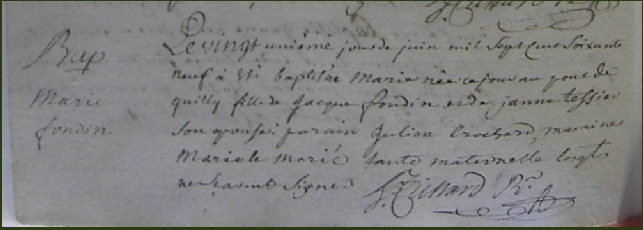 Bap
Marie
fondin
Le vingt unième jour de juin mil Sept Cent Soixante
neuf à Eté baptisée Marie née ce jour au pont de
quilly fille de jacque fondin et de janne tessier
Son epouse parain julien Crochard, maraine
Marie le Marié tante maternelle lesqls
ne Scavent Signer